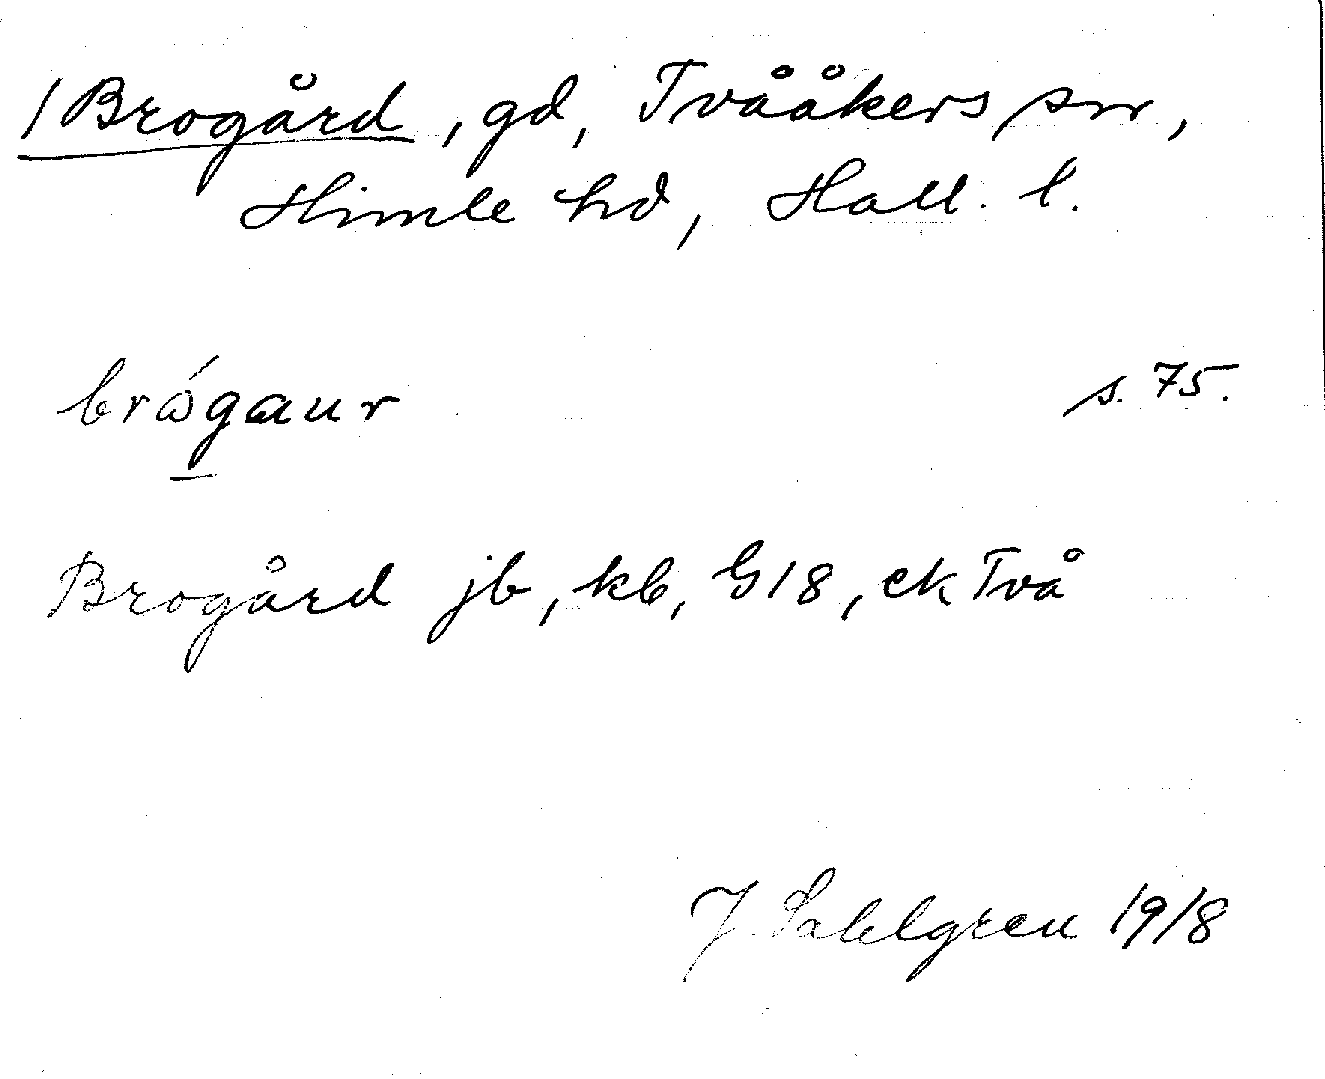 /Brogård, gd, Tvååkers sn,
Himle hd, Hall. l.
brǿgaur s. 75.
Brogård jb, kb, G18, ek Två
J. Sahlgren 1918